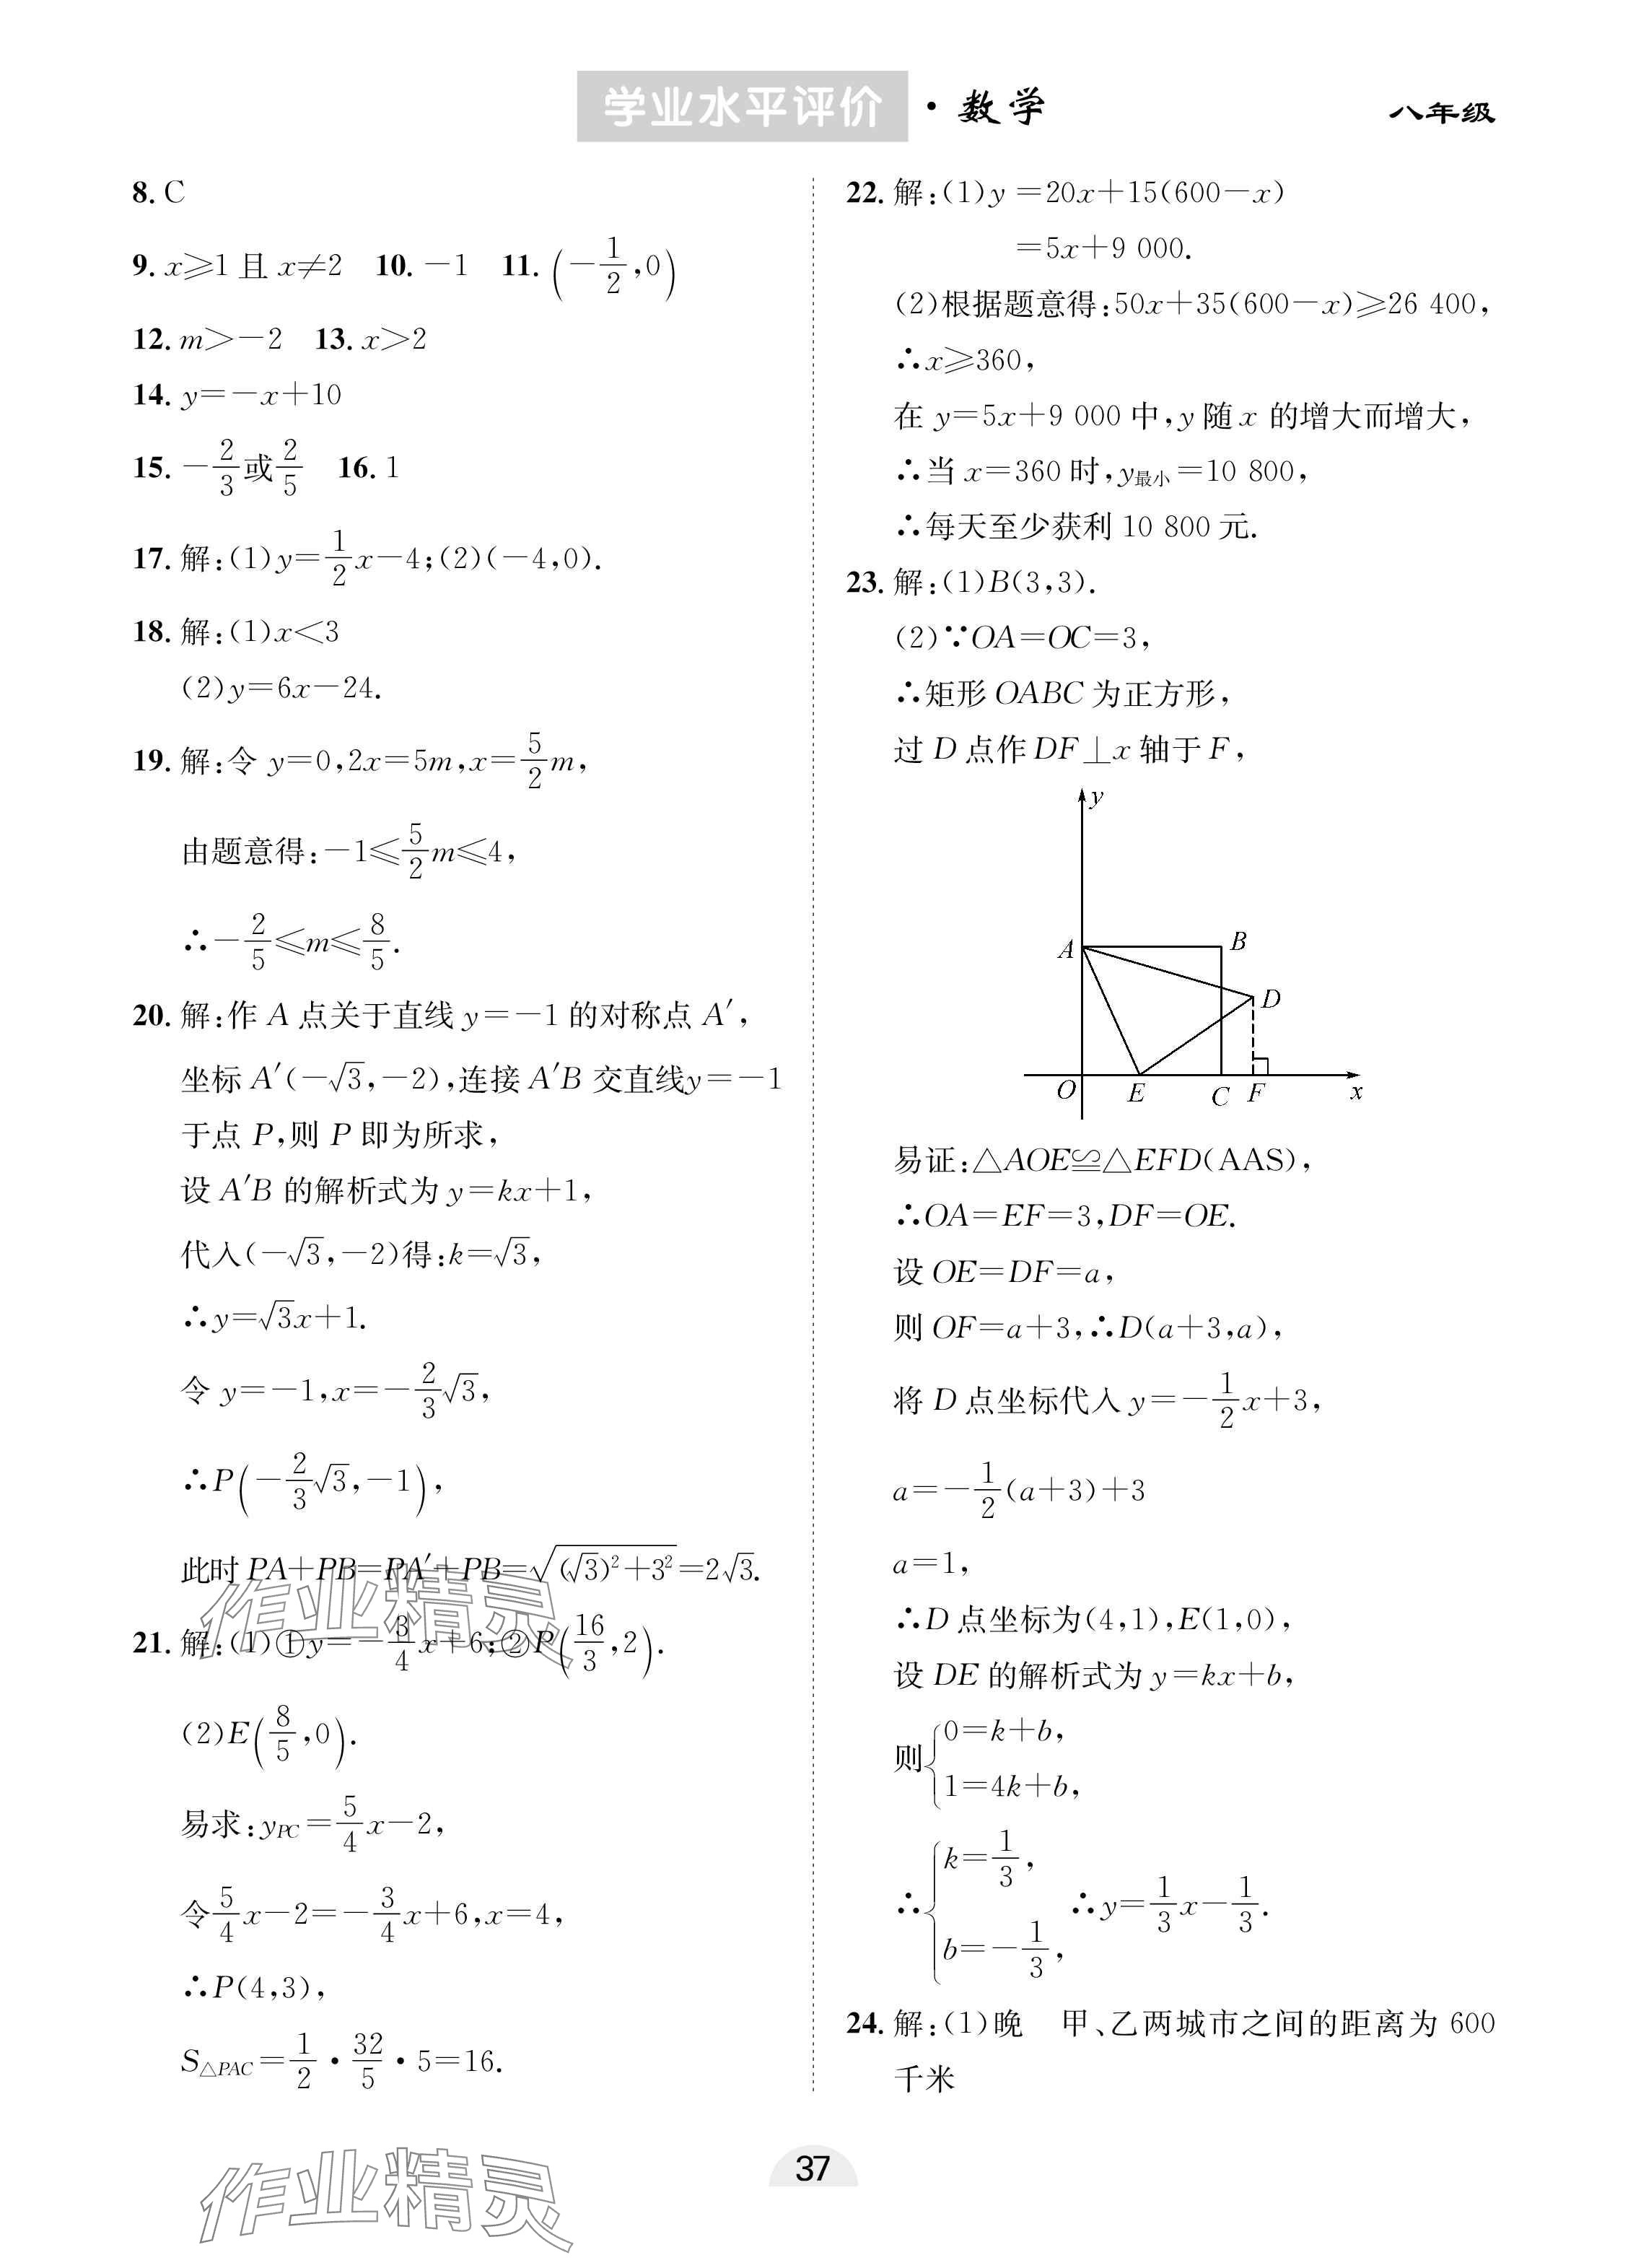 学业水平评价 · 数学 八年级
8. C
9. x⩾1 且 x≠2 10. －1 11. (－1/2,0)
12. m＞－2 13. x＞2
14. y=－x+10
15. －2/3或2/5 16. 1
17. 解:(1)y=1/2x－4;(2)(－4,0).
18. 解:(1)x＜3
(2)y=6x－24.
19. 解:令 y=0,2x=5m,x=5/2m,
由题意得:－1⩽5/2m⩽4,
∴－2/5⩽m⩽8/5.
20. 解:作 A 点关于直线 y=－1 的对称点 A′,
坐标 A′(－√3,－2),连接 A′B 交直线y=－1
于点 P,则 P 即为所求,
设 A′B 的解析式为 y=kx+1,
代入(－√3,－2)得:k=√3,
∴y=√3x+1.
令 y=－1,x=－2/3√3,
∴P(－2/3√3,－1),
此时 PA+PB=PA′+PB=√((√3)²+3²)=2√3.
21. 解:(1)①y=－3/4x+6;②P(16/3,2).
(2)E(8/5,0).
易求:y_PC=5/4x－2,
令5/4x－2=－3/4x+6,x=4,
∴P(4,3),
S△PAC=1/2·32/5·5=16.
22. 解:(1)y =20x+15(600－x)
=5x+9 000.
(2)根据题意得:50x+35(600－x)⩾26 400,
∴x⩾360,
在 y=5x+9 000 中,y 随 x 的增大而增大,
∴当 x=360 时,y最小=10 800,
∴每天至少获利 10 800 元.
23. 解:(1)B(3,3).
(2)∵OA=OC=3,
∴矩形 OABC 为正方形,
过 D 点作 DF⊥x 轴于 F,
y
A B
D
O E C F x
易证:△AOE≌△EFD(AAS),
∴OA=EF=3,DF=OE.
设 OE=DF=a,
则 OF=a+3,∴D(a+3,a),
将 D 点坐标代入 y=－1/2x+3,
a=－1/2(a+3)+3
a=1,
∴D 点坐标为(4,1),E(1,0),
设 DE 的解析式为 y=kx+b,
则{0=k+b,
1=4k+b,
∴{k=1/3,
b=－1/3, ∴y=1/3x－1/3.
24. 解:(1)晚 甲、乙两城市之间的距离为 600
千米
37
作业精灵
作业精灵